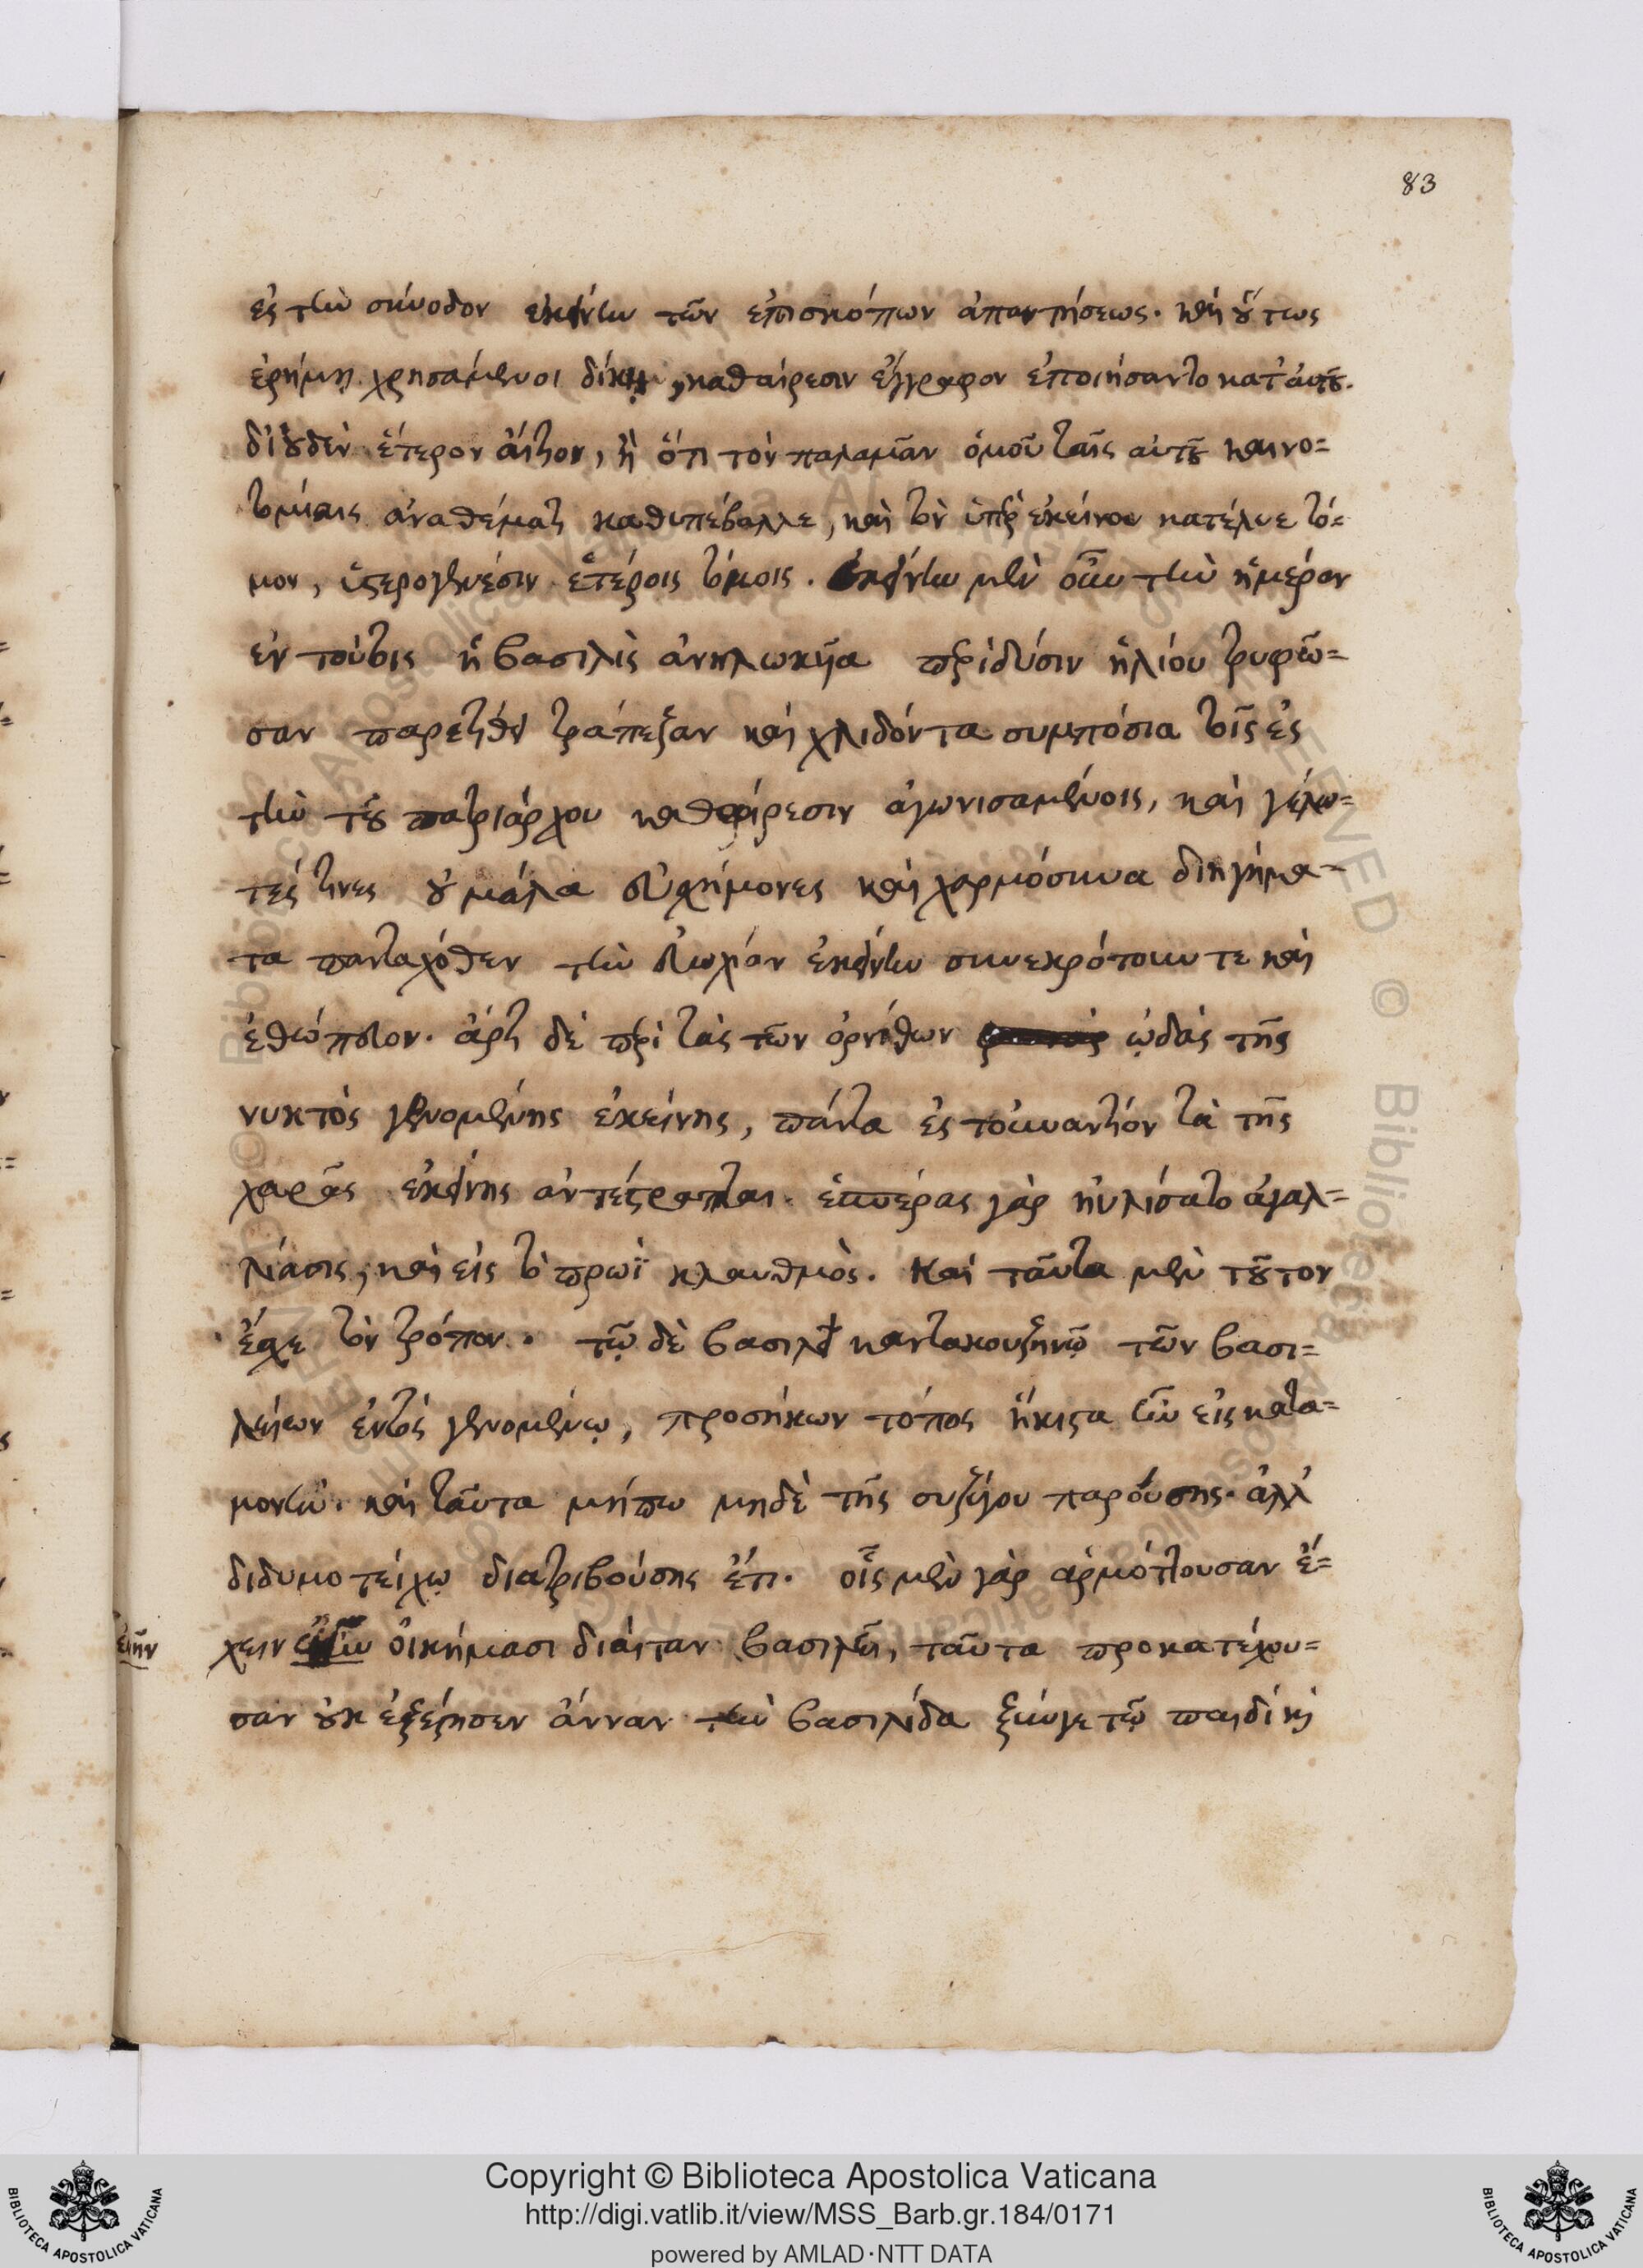 83
ἐς τὴν σύνοδον ἐκείνην τῶν ἐπισκόπων ἀπαντήσεως. καὶ οὕτως
ἐρήμῃ χρησάμενοι δίκῃ, καθαίρεσιν ἔγγραφον ἐποιήσαντο κατ' αὐτοῦ.
δι' οὐδὲν ἕτερον αἴτιον, ἢ ὅτι τὸν παλαμᾶν ὁμοῦ ταῖς αὐτοῦ καινο=
τομίαις ἀναθέματι καθυπέβαλλε, καὶ τὸν ὑπὲρ ἐκείνου κατέλυε τό=
μον, ὑστερογενέσιν ἑτέροις τόμοις. ἐκείνην μὲν οὖν τὴν ἡμέραν
ἐν τούτοις ἡ βασιλὶς ἀνηλωκυῖα περὶ δύσιν ἡλίου τρυφῶ=
σαν παρετίθει τράπεζαν καὶ χλιδόντα συμπόσια τοῖς ἐς
τὴν τοῦ πατριάρχου καθαίρεσιν ἀγωνισαμένοις, καὶ γέλω=
τές τινες οὐ μάλα εὐσχήμονες καὶ χαρμόσυνα διηγήμα=
τα πανταχόθεν τὴν εὐωχίαν ἐκείνην συνεκρότουν τε καὶ
ἐθώπευον. ἄρτι δὲ περὶ τὰς τῶν ὀρνίθων ᾠδὰς τῆς
νυκτὸς γενομένης ἐκείνης, πάντα ἐς τοὐναντίον τὰ τῆς
χαρᾶς ἐκείνης ἀντέστραπται. ἑσπέρας γὰρ ηὐλίσατο ἀγαλ=
λίασις, καὶ εἰς τὸ πρωῒ κλαυθμὸς. Καὶ ταῦτα μὲν τοῦτον
ἔσχε τὸν τρόπον. τῷ δὲ βασιλεῖ καντακουζηνῷ τῶν βασι=
λείων ἐντὸς γενομένῳ, προσήκων τόπος ἥκιστα ἦν εἰς κατα=
μονὴν. καὶ ταῦτα μήπω μηδὲ τῆς συζύγου παρούσης. ἀλλ'
διδυμοτείχῳ διατριβούσης ἔτι. οἷς μὲν γὰρ ἁρμόττουσαν ἔ=
χειν οἰκήμασι δίαιταν βασιλεῖ, ταῦτα προκατέχου=
σαν οὐκ ἐξέστησεν ἄνναν τὴν βασιλίδα ξύν γε τῷ παιδὶ καὶ
Copyright © Biblioteca Apostolica Vaticana
http://digi.vatlib.it/view/MSS_Barb.gr.184/0171
powered by AMLAD·NTT DATA
BIBLIOTECA APOSTOLICA VATICANA
BIBLIOTECA APOSTOLICA VATICANA